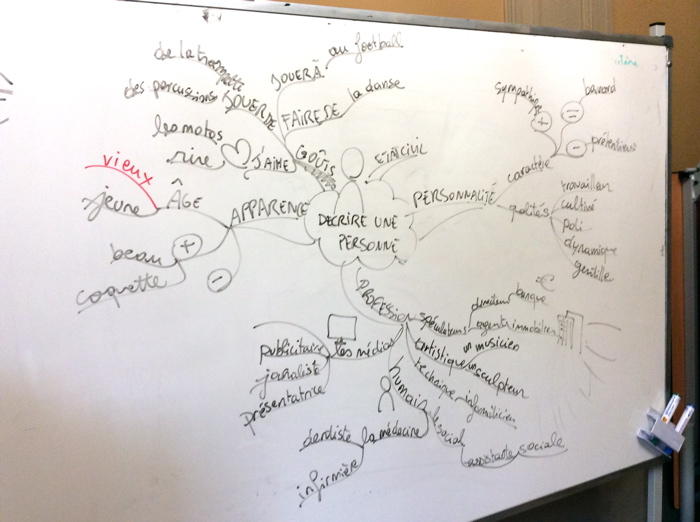 DECRIRE UNE
PERSONNE
ETAT CIVIL
PERSONNALITÉ
caractère
sympathique
+
=
bavard
-
prétentieuse
qualités
travailleur
cultivé
poli
dynamique
gentille
PROFESSION
spéculateurs
banque
€
agents immobilier
artistique
un musicien
sculpteur
technique
informaticien
humain
le social
assistante sociale
la médecine
dentiste
infirmière
les médias
publicitaire
présentatrice
APPARENCE
ÂGE
vieux
jeune
+
beau
coquette
-
GOÛTS
J'AIME
les motos
rire
JOUER DE
de la trompette
des percussions
JOUER À
au football
FAIRE DE
la danse